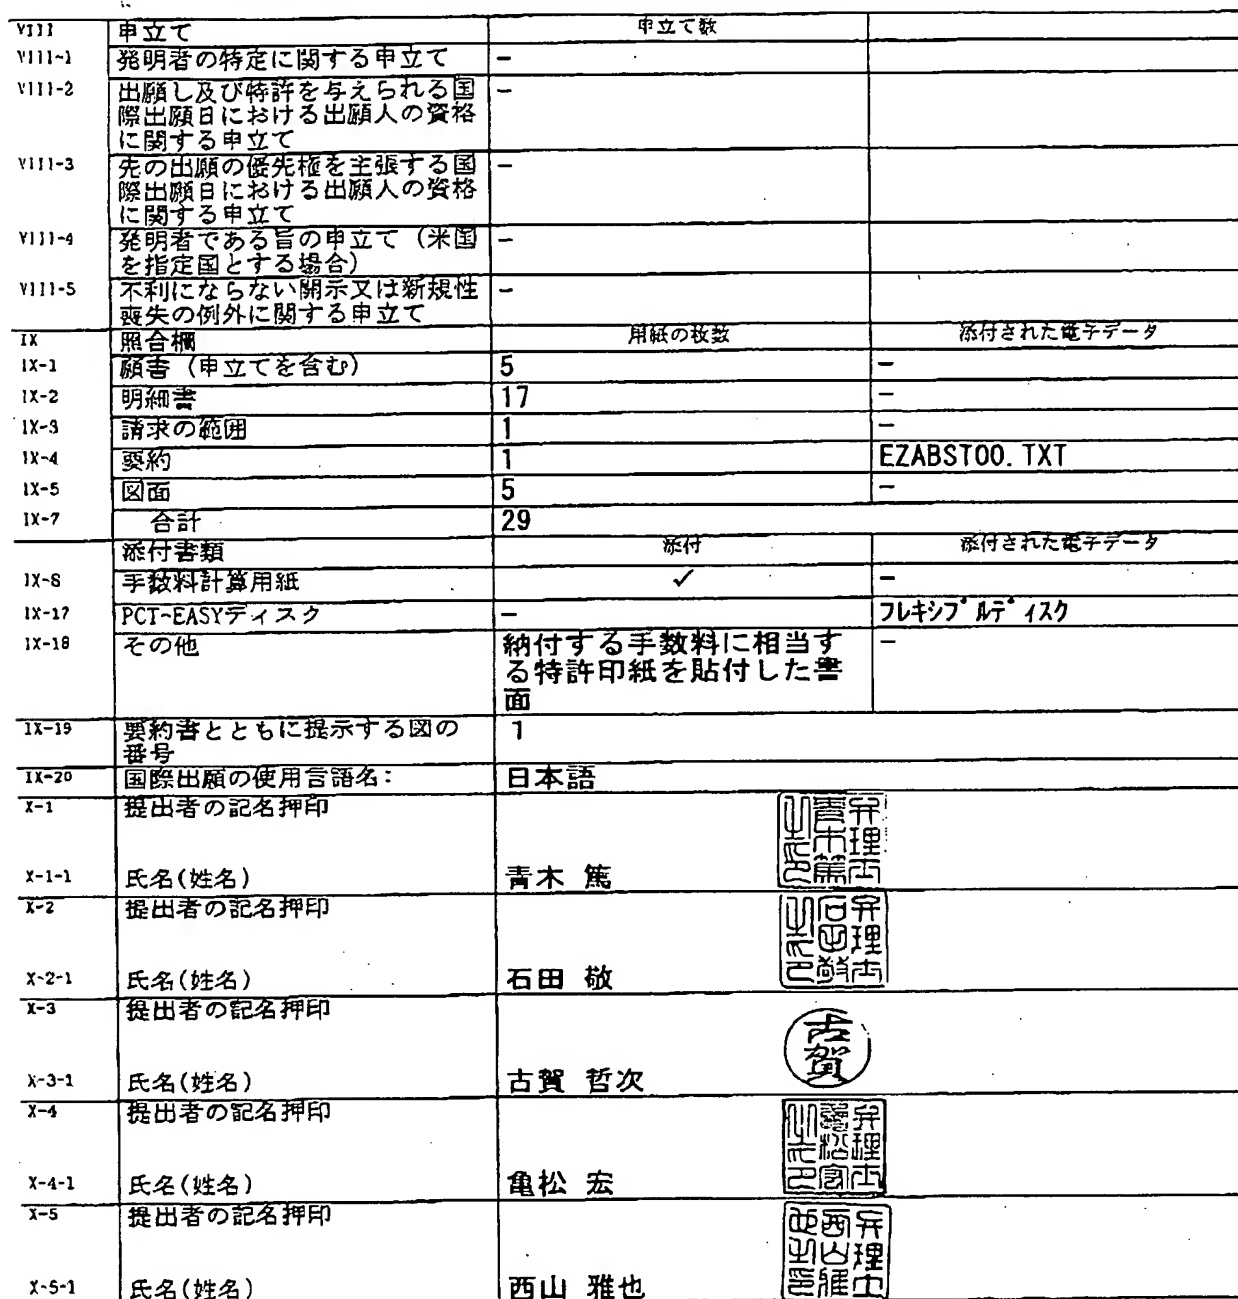 VIII 申立て 申立て数
VIII-1 発明者の特定に関する申立て -
VIII-2 出願し及び特許を与えられる国 -
際出願日における出願人の資格
に関する申立て
VIII-3 先の出願の優先権を主張する国 -
際出願日における出願人の資格
に関する申立て
VIII-4 発明者である旨の申立て（米国 -
を指定国とする場合）
VIII-5 不利にならない開示又は新規性 -
喪失の例外に関する申立て
IX 照合欄 用紙の枚数 添付された電子データ
IX-1 願書（申立てを含む） 5 -
IX-2 明細書 17 -
IX-3 請求の範囲 1 -
IX-4 要約 1 EZABST00.TXT
IX-5 図面 5 -
IX-7 合計 29
添付書類 添付 添付された電子データ
IX-8 手数料計算用紙 ✓ -
IX-17 PCT-EASYディスク - フレキシブルディスク
IX-18 その他 納付する手数料に相当す -
る特許印紙を貼付した書
面
IX-19 要約書とともに提示する図の 1
番号
IX-20 国際出願の使用言語名： 日本語
X-1 提出者の記名押印
弁理士青木篤之印
X-1-1 氏名(姓名) 青木 篤
X-2 提出者の記名押印
弁理士石田敬之印
X-2-1 氏名(姓名) 石田 敬
X-3 提出者の記名押印
古賀
X-3-1 氏名(姓名) 古賀 哲次
X-4 提出者の記名押印
弁理士亀松宏之印
X-4-1 氏名(姓名) 亀松 宏
X-5 提出者の記名押印
弁理士西山雅也之印
X-5-1 氏名(姓名) 西山 雅也